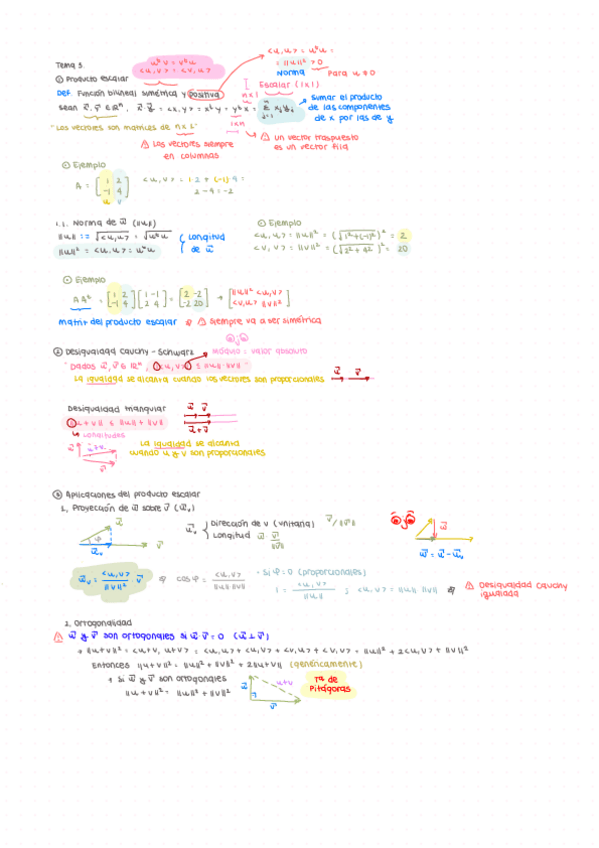 Tema 3.
① Producto escalar
uᵗv = vᵗu
<u,v> = <v,u>
<u,u> = uᵗu =
= ||u||² > 0
Norma Para u ≠ 0
Def. Función bilineal simétrica y positiva
Escalar (1x1)
nx1
sean x⃗, y⃗ ∈ ℝⁿ, x⃗·y⃗ = <x,y> = xᵗy = yᵗx = Σ xⱼyⱼ
j=1
1xn
sumar el producto
de las componentes
de x por las de y
"Los vectores son matrices de nx1"
⚠ Los vectores siempre
en columnas
⚠ un vector traspuesto
es un vector fila
Ejemplo
A = [1 2; -1 4] <u,v> = 1·2 + (-1)·4 =
u v
2-4 = -2
1.1. Norma de u⃗ (||u||)
||u|| = √<u,u> = √uᵗu
||u||² = <u,u> = uᵗu
Longitud
de u⃗
Ejemplo
<u,u> = ||u||² = (√1²+(-1)²)² = 2
<v,v> = ||v||² = (√2²+4²)² = 20
Ejemplo
AAᵗ = [1 2; -1 4] [1 -1; 2 4] = [2 -2; -2 20] → [||u||² <u,v>; <v,u> ||v||²]
matriz del producto escalar ⚠ Siempre va a ser simétrica
② Desigualdad Cauchy-Schwarz
ojo
módulo = valor absoluto
"Dados u⃗, v⃗ ∈ ℝⁿ, |<u,v>| ≤ ||u||·||v||"
La igualdad se alcanza cuando los vectores son proporcionales
u⃗ v⃗
Desigualdad triangular
||u+v|| ≤ ||u|| + ||v||
Longitudes
u⃗ v⃗
u⃗+v⃗
u⃗ u+v
v⃗
La igualdad se alcanza
cuando u y v son proporcionales
③ Aplicaciones del producto escalar
1. Proyección de u⃗ sobre v⃗ (u⃗ᵥ)
u⃗ φ u⃗ᵥ v⃗
u⃗ᵥ { Dirección de v (unitaria) v⃗/||v||
Longitud u⃗ · v⃗/||v||
ojo
u⃗
w⃗ = u⃗ - u⃗ᵥ
u⃗ᵥ = <u,v>/||v||² v⃗ cosφ = <u,v>/||u|| ||v||
· Si φ=0 (proporcionales)
<u,v> = ||u|| ||v||
⚠ Desigualdad Cauchy
igualada
2. Ortogonalidad
⚠ u⃗ y v⃗ son ortogonales si u⃗·v⃗ = 0 (u⃗⊥v⃗)
||u+v||² = <u+v, u+v> = <u,u> + <u,v> + <v,u> + <v,v> = ||u||² + 2<u,v> + ||v||²
Entonces ||u+v||² = ||u||² + ||v||² + 2||u+v|| (genéricamente)
Si u⃗ y v⃗ son ortogonales
||u+v||² = ||u||² + ||v||²
u⃗ u+v
v⃗
Tª de
Pitágoras